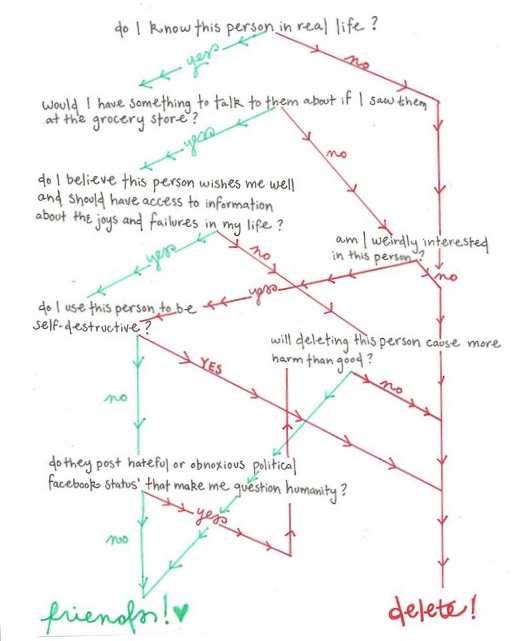 do I know this person in real life?
yes
no
would I have something to talk to them about if I saw them
at the grocery store?
yes
no
do I believe this person wishes me well
and should have access to information
about the joys and failures in my life?
am I weirdly interested
in this person?
yes
no
yes
no
do I use this person to be
self-destructive?
will deleting this person cause more
harm than good?
no
YES
no
do they post hateful or obnoxious political
facebook status' that make me question humanity?
yes
no
friends! ♥
delete!